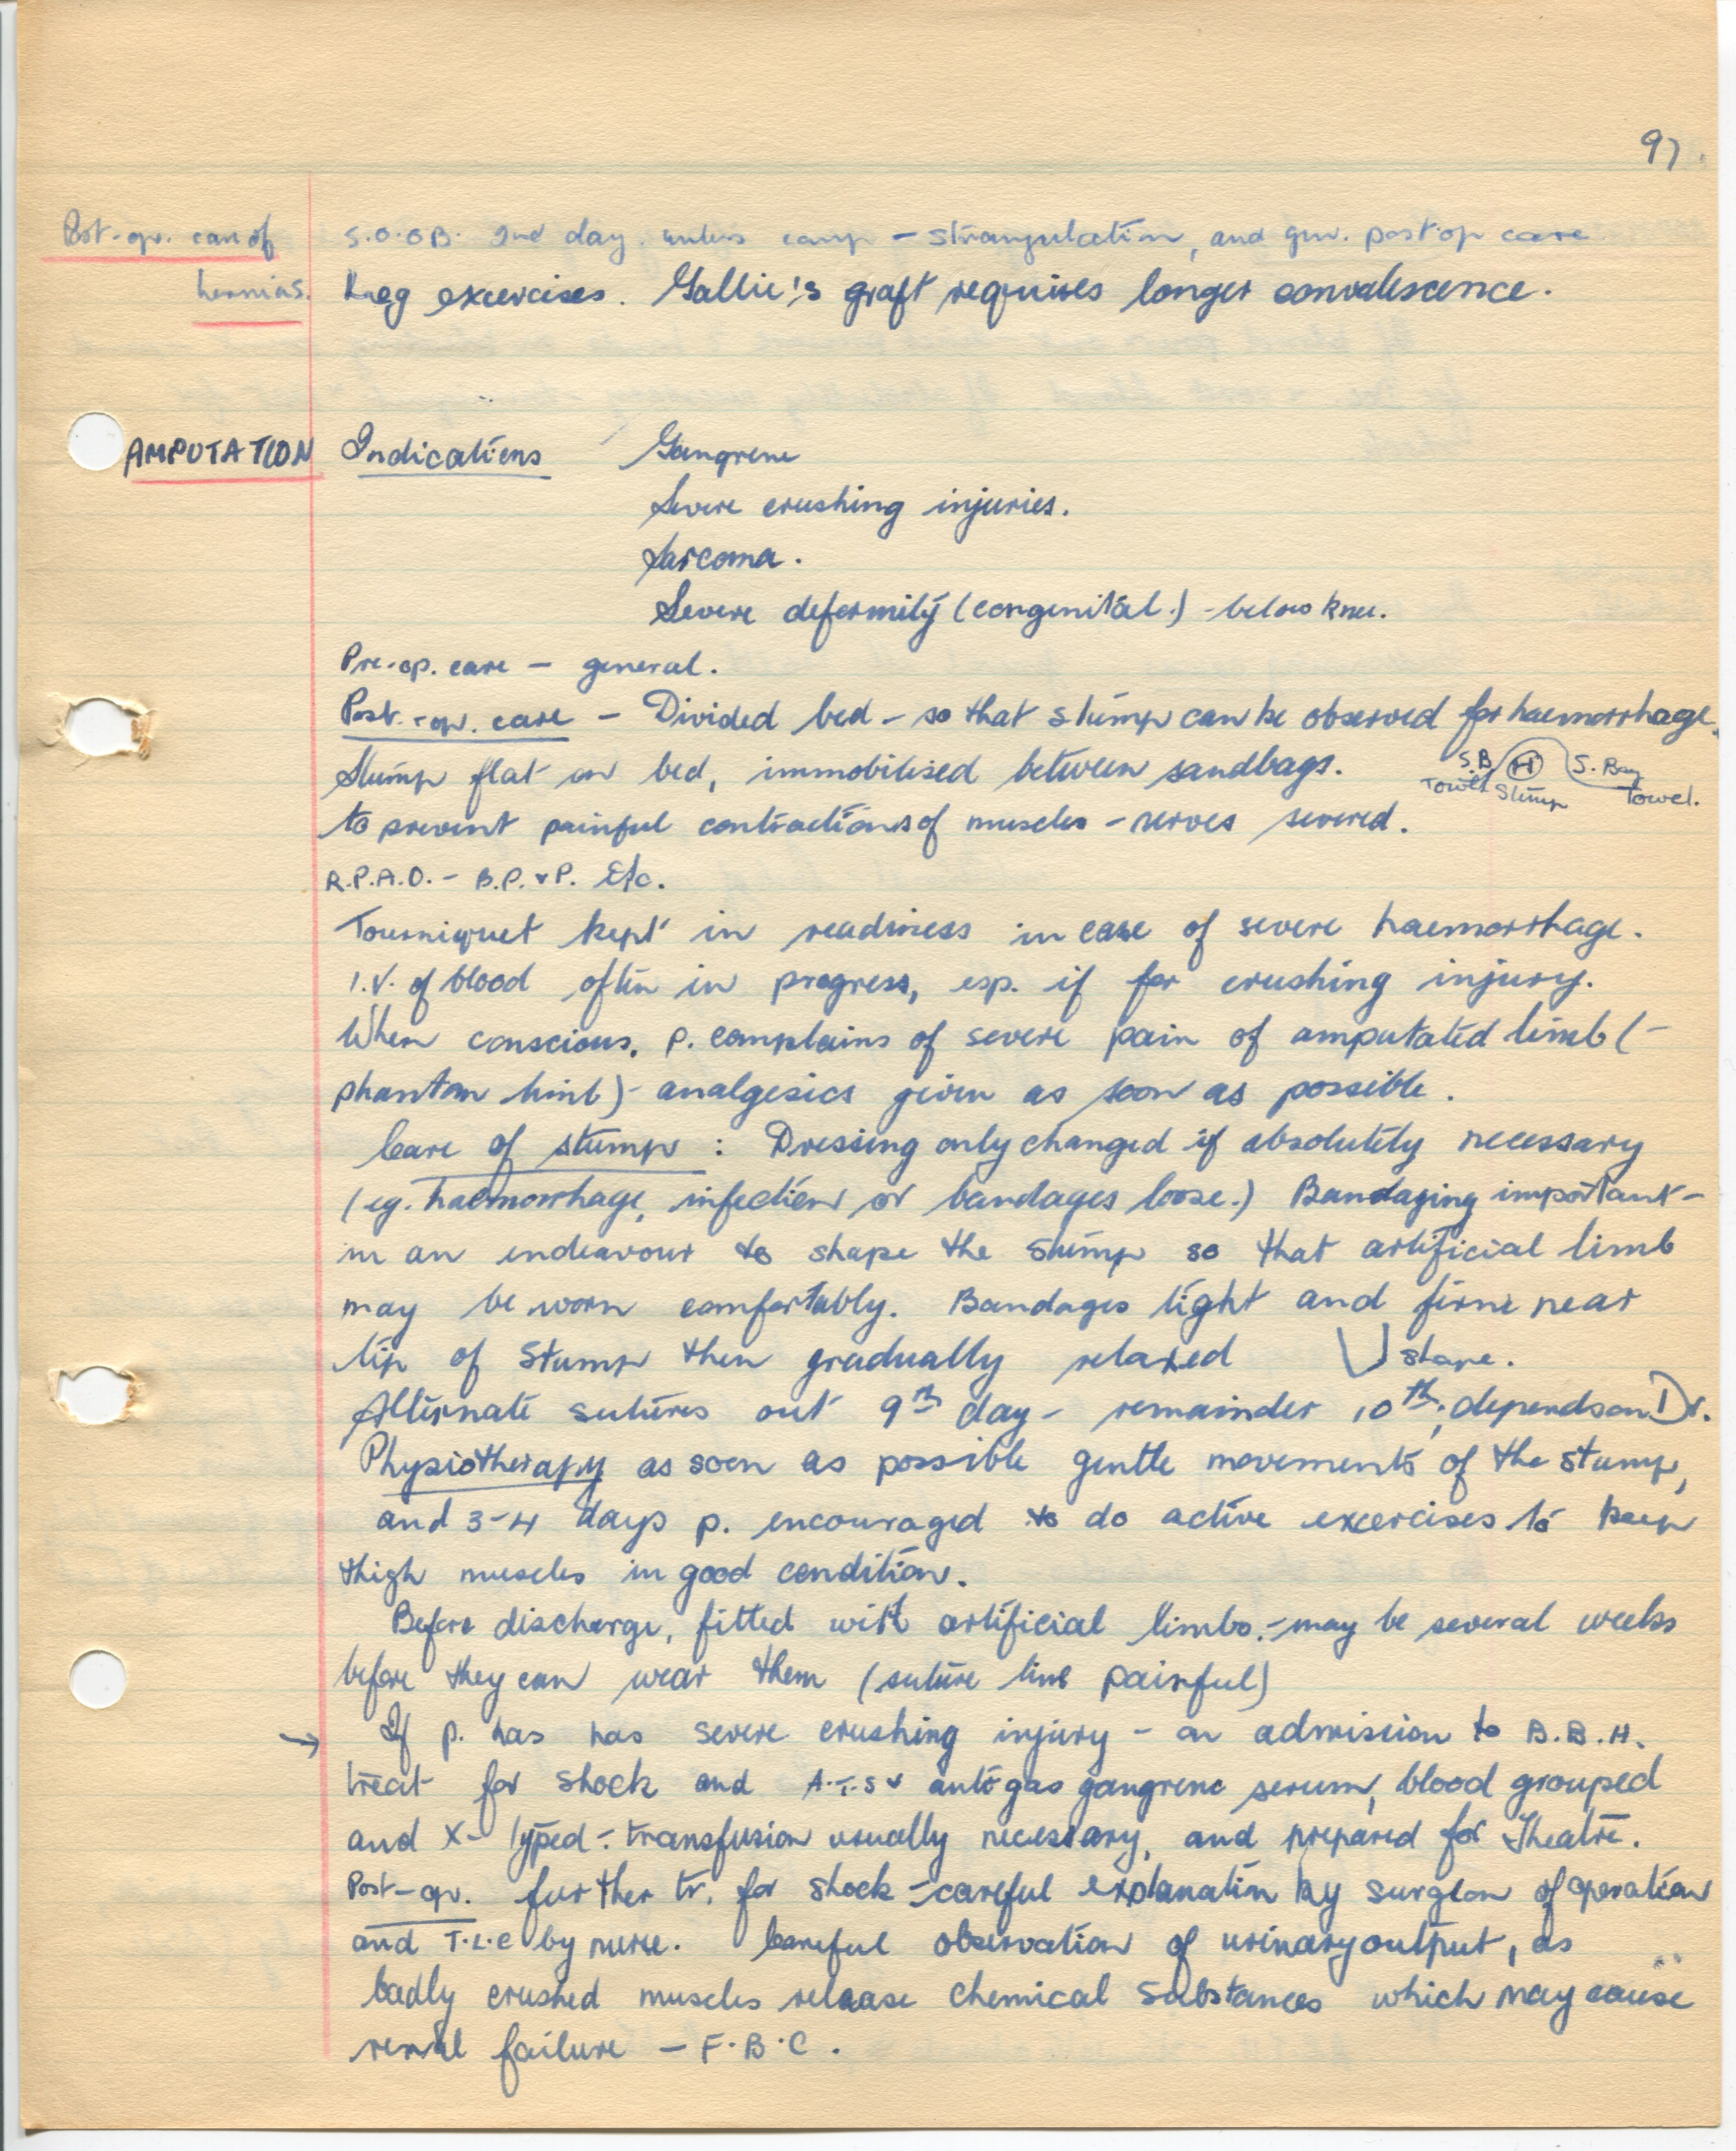 97.
Post-op. care of S.O.OB. 2nd day. unless comp - strangulation, and gen. post op care
hernias. Leg excercises. Gallie's graft requires longer convalescence.
AMPUTATION Indications Gangrene
Severe crushing injuries.
Sarcoma.
Severe deformity (congenital.) - below knee.
Pre-op. care - general.
Post.-op. care - Divided bed - so that stump can be observed for haemorrhage.
Stump flat on bed, immobilised between sandbags.
S.B H S. Bag
Towel Stump Towel.
to prevent painful contractions of muscles - nerves severed.
R.P.A.O. - B.P. & P. Etc.
Tourniquet kept in readiness in case of severe haemorrhage.
I.V. of blood often in progress, esp. if for crushing injury.
When conscious, p. complains of severe pain of amputated limb (-
phantom limb) - analgesics given as soon as possible.
Care of stump : Dressing only changed if absolutely necessary
(eg. haemorrhage, infection or bandages loose.) Bandaging important -
in an endeavour to shape the stump so that artificial limb
may be worn comfortably. Bandages tight and firm near
tip of stump then gradually relaxed shape.
Alternate sutures out 9th day - remainder 10th, depends on Dr.
Physiotherapy as soon as possible gentle movements of the stump,
and 3-4 days p. encouraged to do active excercises to keep
thigh muscles in good condition.
Before discharge, fitted with artificial limbs. - may be several weeks
before they can wear them (suture line painful)
→ If p. has has severe crushing injury - on admission to B.B.H.
treat for shock and A.T.S & anti gas gangrene serum, blood grouped
and X-typed - transfusion usually necessary, and prepared for Theatre.
Post-op. further tr. for shock - careful explanation by surgeon of operation
and T.L.C by nurse. Careful observation of urinary output, as
badly crushed muscles release chemical substances which may cause
renal failure - F.B.C.